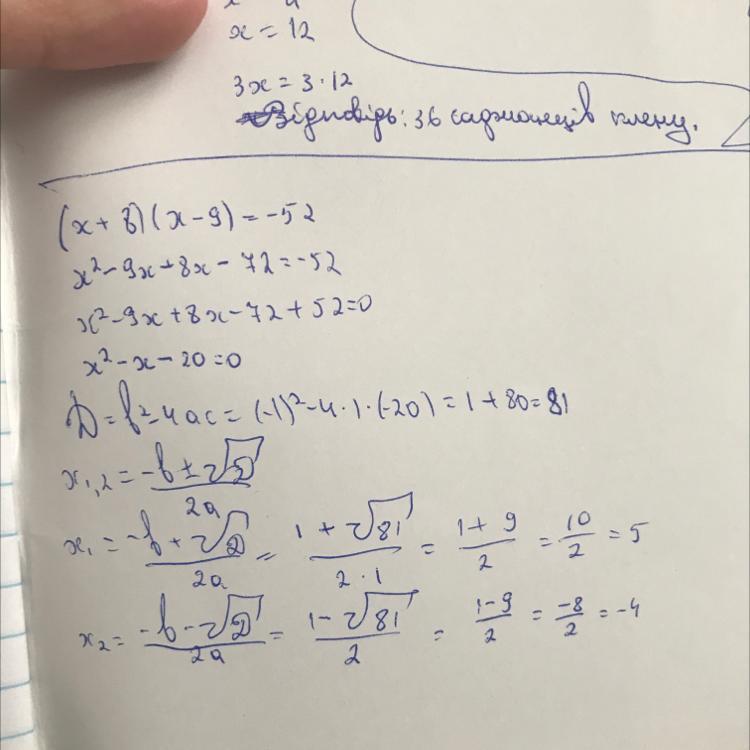 x = 12
3x = 3·12
Відповідь: 36 саджанців клену.
(x + 8)(x - 9) = -52
x² - 9x + 8x - 72 = -52
x² - 9x + 8x - 72 + 52 = 0
x² - x - 20 = 0
D = b² - 4ac = (-1)² - 4·1·(-20) = 1 + 80 = 81
x₁,₂ = (-b ± √D)/2a
x₁ = (-b + √D)/2a = (1 + √81)/(2·1) = (1 + 9)/2 = 10/2 = 5
x₂ = (-b - √D)/2a = (1 - √81)/2 = (1 - 9)/2 = -8/2 = -4